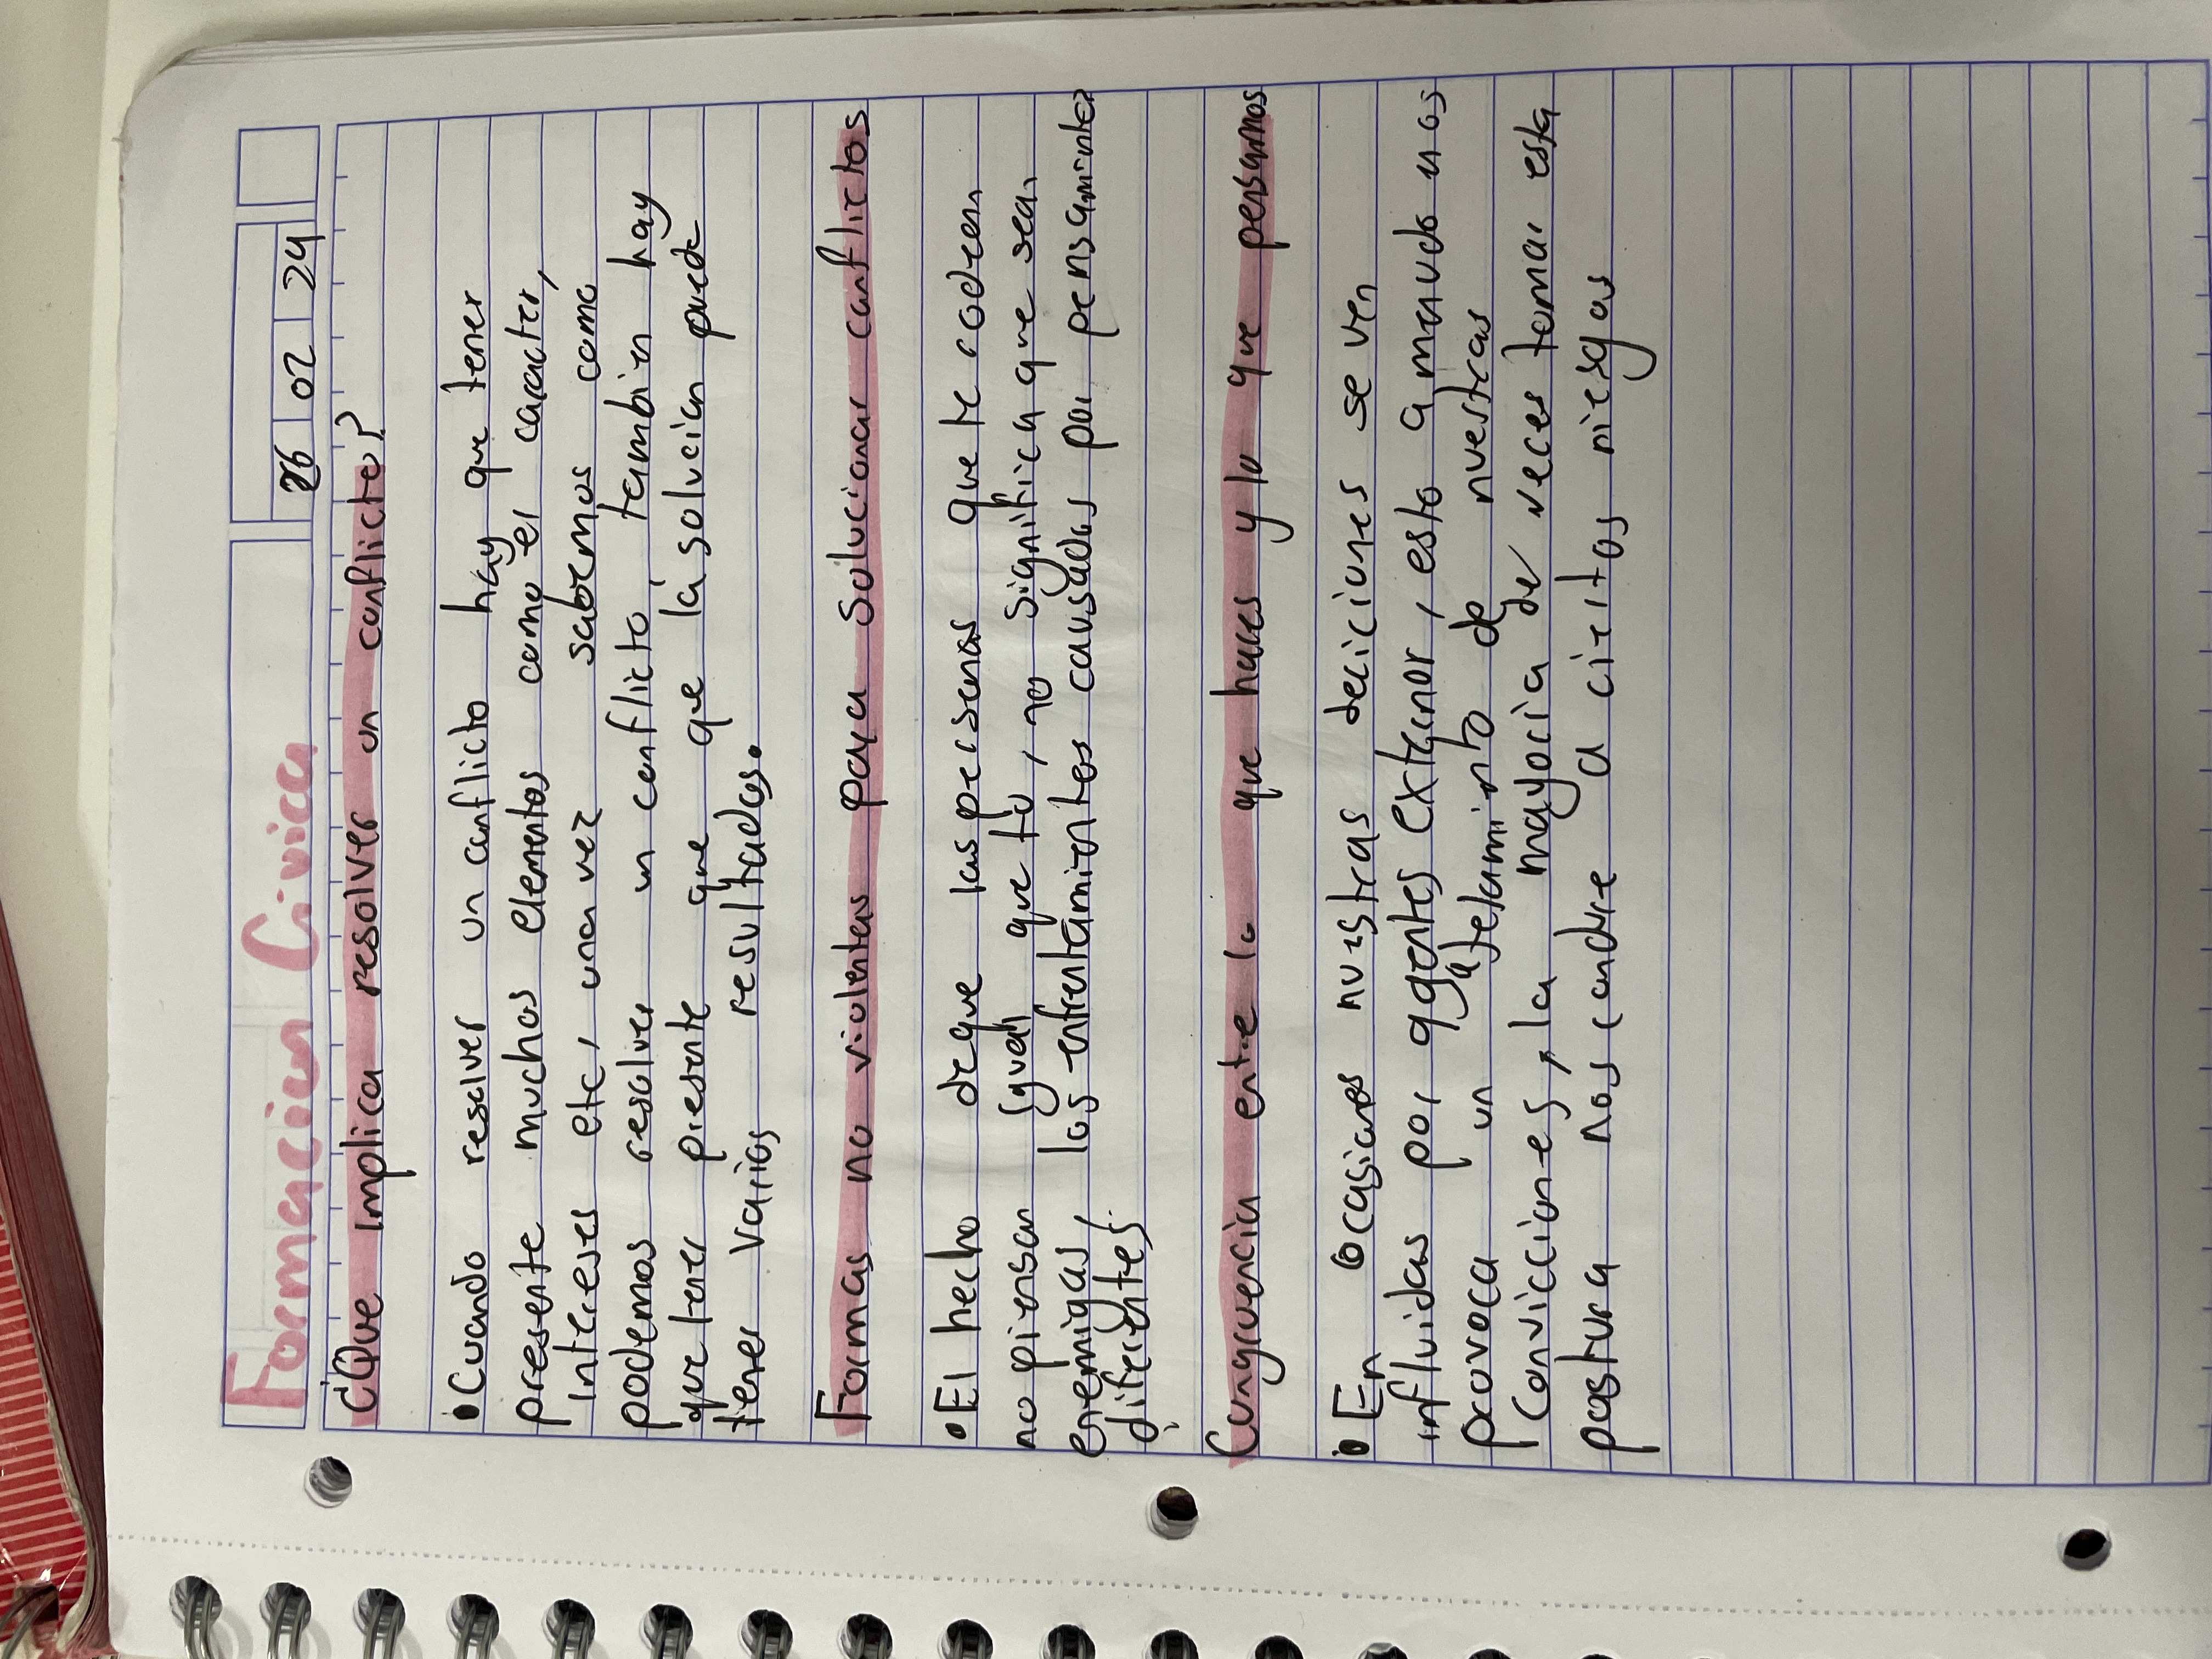 Formacion Civica
26 02 24
¿Que Implica resolver un conflicto?
• Cuando resolver un conflicto hay que tener
presente muchos elementos como el caracter,
Intereses etc, una vez sabemos como
podemos resolver un conflicto, tambien hay
que tener presente que que la solucion puede
tener varios resultados.
Formas no violentas para solucionar conflictos
• El hecho de que las personas que te rodeen
no piensan igual que tú, no significa que sean
enemigas, los enfrentamientos causados por pensamientos
diferentes.
Congruencia entre lo que haces y lo que pensamos
• En ocasiones nuestras deciciones se ven
influidas por agentes externor, esto a menudo nos
provoca un de nuestras
Convicciones, la mayoria de veces tomar esta
postura nos conduce a ciertos riesgos